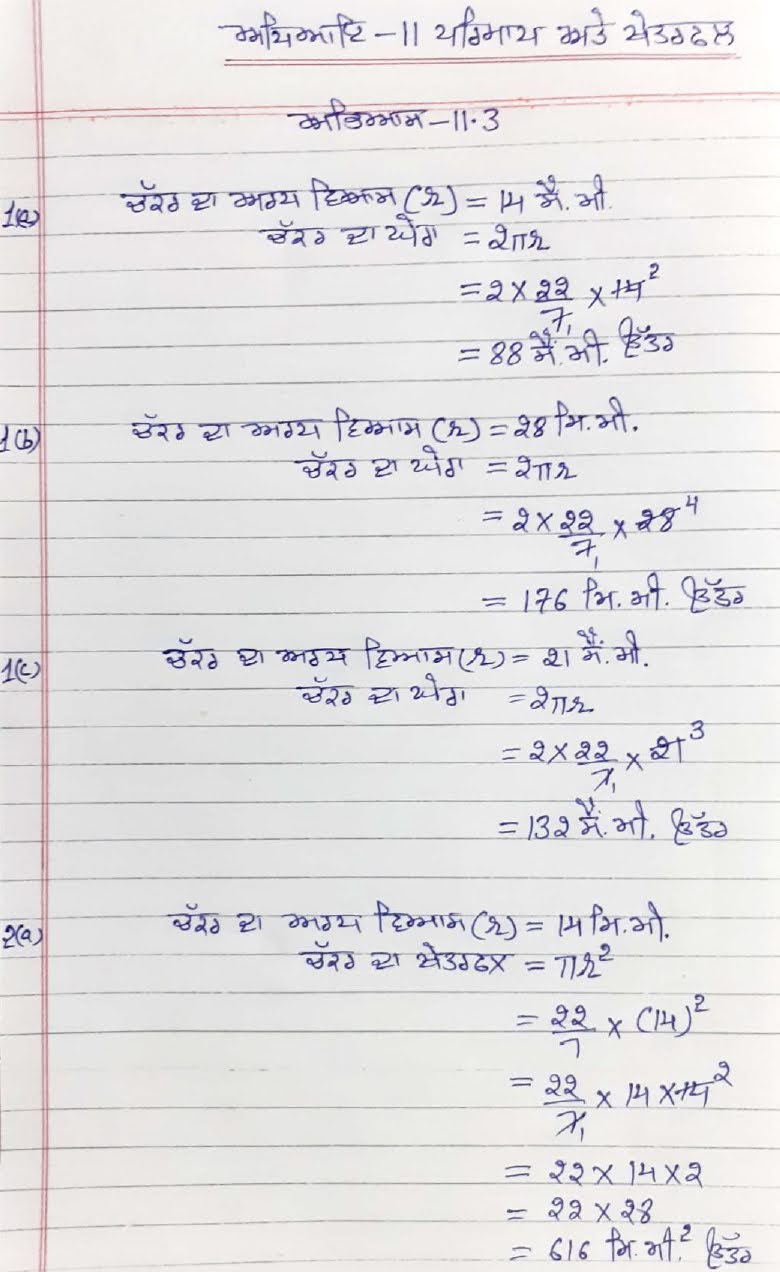 ਅਧਿਆਇ - 11 ਪਰਿਮਾਪ ਅਤੇ ਖੇਤਰਫਲ
ਅਭਿਆਸ - 11.3
1(a) ਚੱਕਰ ਦਾ ਅਰਧ ਵਿਆਸ (r) = 14 ਸੈਂ.ਮੀ.
ਚੱਕਰ ਦਾ ਘੇਰਾ = 2πr
= 2 × 22/7 1 × 14 2
= 88 ਸੈਂ.ਮੀ. ਉੱਤਰ
1(b) ਚੱਕਰ ਦਾ ਅਰਧ ਵਿਆਸ (r) = 28 ਮਿ.ਮੀ.
ਚੱਕਰ ਦਾ ਘੇਰਾ = 2πr
= 2 × 22/7 1 × 28 4
= 176 ਮਿ.ਮੀ. ਉੱਤਰ
1(c) ਚੱਕਰ ਦਾ ਅਰਧ ਵਿਆਸ (r) = 21 ਸੈਂ.ਮੀ.
ਚੱਕਰ ਦਾ ਘੇਰਾ = 2πr
= 2 × 22/7 1 × 21 3
= 132 ਸੈਂ.ਮੀ. ਉੱਤਰ
2(a) ਚੱਕਰ ਦਾ ਅਰਧ ਵਿਆਸ (r) = 14 ਮਿ.ਮੀ.
ਚੱਕਰ ਦਾ ਖੇਤਰਫਲ = πr²
= 22/7 × (14)²
= 22/7 1 × 14 × 14 2
= 22 × 14 × 2
= 22 × 28
= 616 ਮਿ.ਮੀ.² ਉੱਤਰ